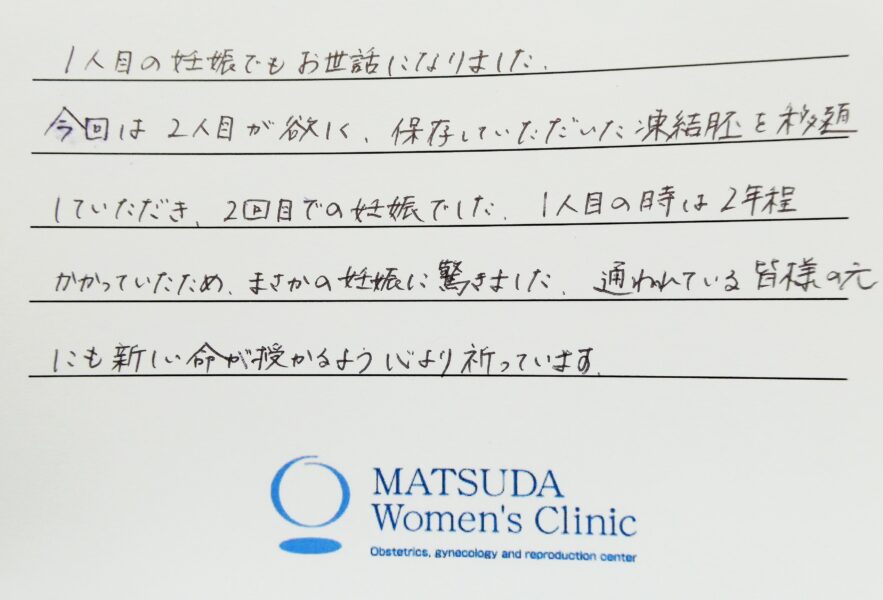 1人目の妊娠でもお世話になりました.
今回は2人目が欲しく、保存していただいた凍結胚を移題
していただき、2回目での妊娠でした. 1人目の時は2年程
かかっていたため、まさかの妊娠に驚きました. 通われている皆様の元
にも新しい命が授かるよう心より祈っています.
MATSUDA
Women's Clinic
Obstetrics, gynecology and reproduction center